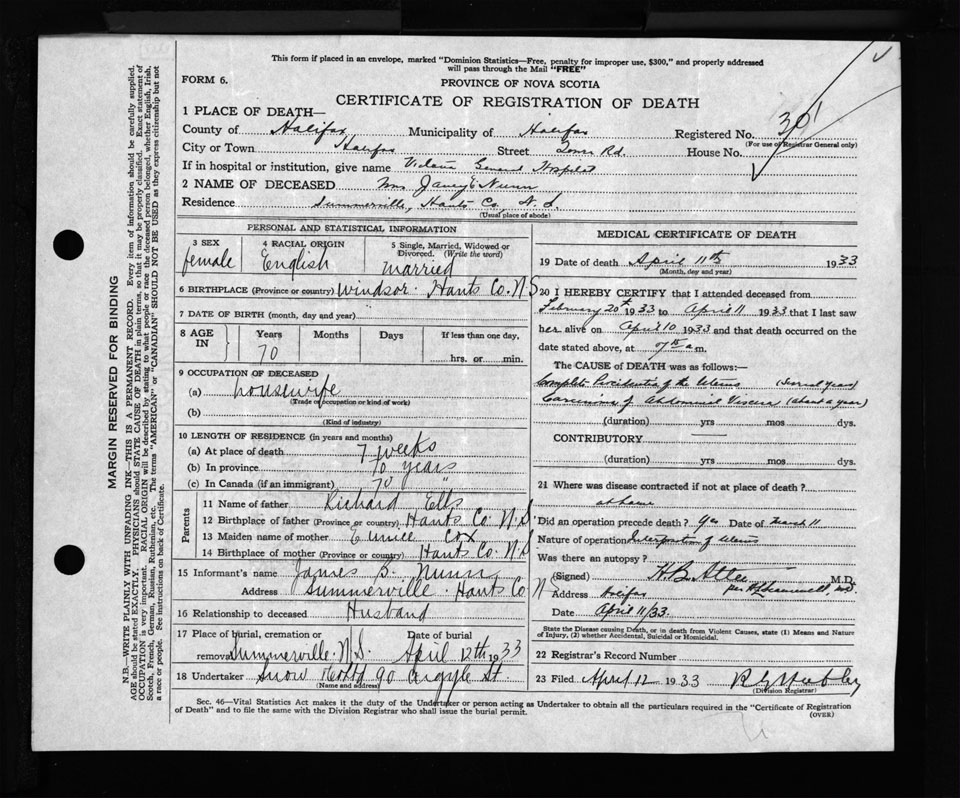 This form if placed in an envelope, marked "Dominion Statistics—Free, penalty for improper use, $300," and properly addressed
will pass through the Mail "FREE"
FORM 6.
PROVINCE OF NOVA SCOTIA
CERTIFICATE OF REGISTRATION OF DEATH
1 PLACE OF DEATH—
County of Halifax Municipality of Halifax Registered No. 301
(For use of Registrar General only)
City or Town Halifax Street Tower Rd. House No.
If in hospital or institution, give name Victoria General Hospital
2 NAME OF DECEASED Mrs Janey E Nunn
Residence Summerville, Hants Co, N.S.
(Usual place of abode)
PERSONAL AND STATISTICAL INFORMATION
3 SEX
female
4 RACIAL ORIGIN
English
5 Single, Married, Widowed or
Divorced. (Write the word)
Married
6 BIRTHPLACE (Province or country) Windsor. Hants Co. N.S
7 DATE OF BIRTH (month, day and year)
8 AGE IN
Years
70
Months
Days
If less than one day,
hrs. or min.
9 OCCUPATION OF DECEASED
(a) housewife
(Trade, occupation or kind of work)
(b)
(Kind of industry)
10 LENGTH OF RESIDENCE (in years and months)
(a) At place of death 7 weeks
(b) In province 70 years
(c) In Canada (if an immigrant) 70 "
Parents
11 Name of father Richard Ells
12 Birthplace of father (Province or country) Hants Co. N.S.
13 Maiden name of mother Eunice Cox
14 Birthplace of mother (Province or country) Hants Co. N.S
15 Informant's name James S. Nunn
Address Summerville. Hants Co N
16 Relationship to deceased Husband
17 Place of burial, cremation or Date of burial
removal Summerville. N.S. April 12th 1933
18 Undertaker Snow & Co Ltd 90 Argyle St.
(Name and address)
MEDICAL CERTIFICATE OF DEATH
19 Date of death April 11th 1933
(Month, day and year)
20 I HEREBY CERTIFY that I attended deceased from
February 20th 1933 to April 11 1933 that I last saw
her alive on April 10 1933 and that death occurred on
date stated above, at a.m.
The CAUSE OF DEATH was as follows:—
Complete Procidentia of the Uterus (several years)
Carcinoma of Abdominal Viscera (about a year)
(duration) yrs mos dys.
CONTRIBUTORY
(duration) yrs mos dys.
21 Where was disease contracted if not at place of death?
at home
Did an operation precede death? Yes Date of March 11
Nature of operation Interposition of Uterus
Was there an autopsy?
(Signed) H B Atlee M.D.
per
Address Halifax
Date April 11/33.
State the Disease causing Death, or in death from Violent Causes, state (1) Means and Nature
of Injury, (2) whether Accidental, Suicidal or Homicidal.
22 Registrar's Record Number
23 Filed April 12 1933
(Division Registrar)
Sec. 46—Vital Statistics Act makes it the duty of the Undertaker or person acting as Undertaker to obtain all the particulars required in the "Certificate of Registration
of Death" and to file the same with the Division Registrar who shall issue the burial permit.
(OVER)
MARGIN RESERVED FOR BINDING
N.B.—WRITE PLAINLY WITH UNFADING INK—THIS IS A PERMANENT RECORD. Every item of information should be carefully supplied.
AGE should be stated EXACTLY. PHYSICIANS should STATE CAUSE OF DEATH in plain terms, so that it may be properly classified. Exact statement of
OCCUPATION is very important. RACIAL ORIGIN will be described by stating to what people or race the deceased person belonged, whether English, Irish,
Scotch, French, German, Russian, Ruthenian, etc. The terms "AMERICAN" or "CANADIAN" SHOULD NOT BE USED as they express citizenship but not
a race or people. See instructions on back of Certificate.